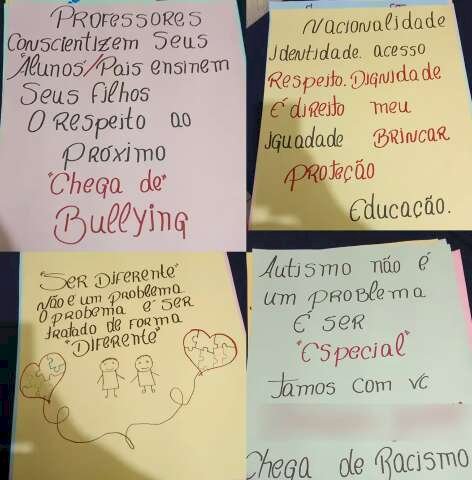 Professores
Conscientizem Seus
Alunos/Pais ensinem
Seus filhos
O Respeito ao
Próximo
"Chega de"
Bullying
Nacionalidade
identidade. acesso
Respeito. Dignidade
É direito meu
iguadade Brincar
Proteção
Educação.
"Ser Diferente"
Não é um problema
O probema é ser
tratado de forma
"Diferente"
Autismo não é
um problema
É ser
"Especial"
Tamos com vc
Chega de Racismo